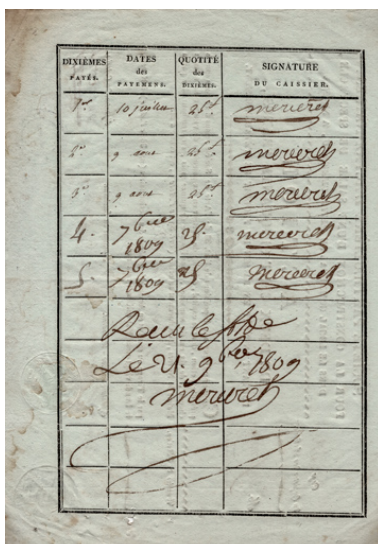 DIXIÈMES PAYÉS. DATES des PAYEMENS. QUOTITÉ des DIXIÈMES. SIGNATURE DU CAISSIER.
1er 10 juillet 25f mercret
2e 9 août 25f mercret
3e 9 août 25f mercret
4. 7bre 1809 25 mercret
5. 7bre 1809 25 mercret
Le 21. 9bre 1809
mercret